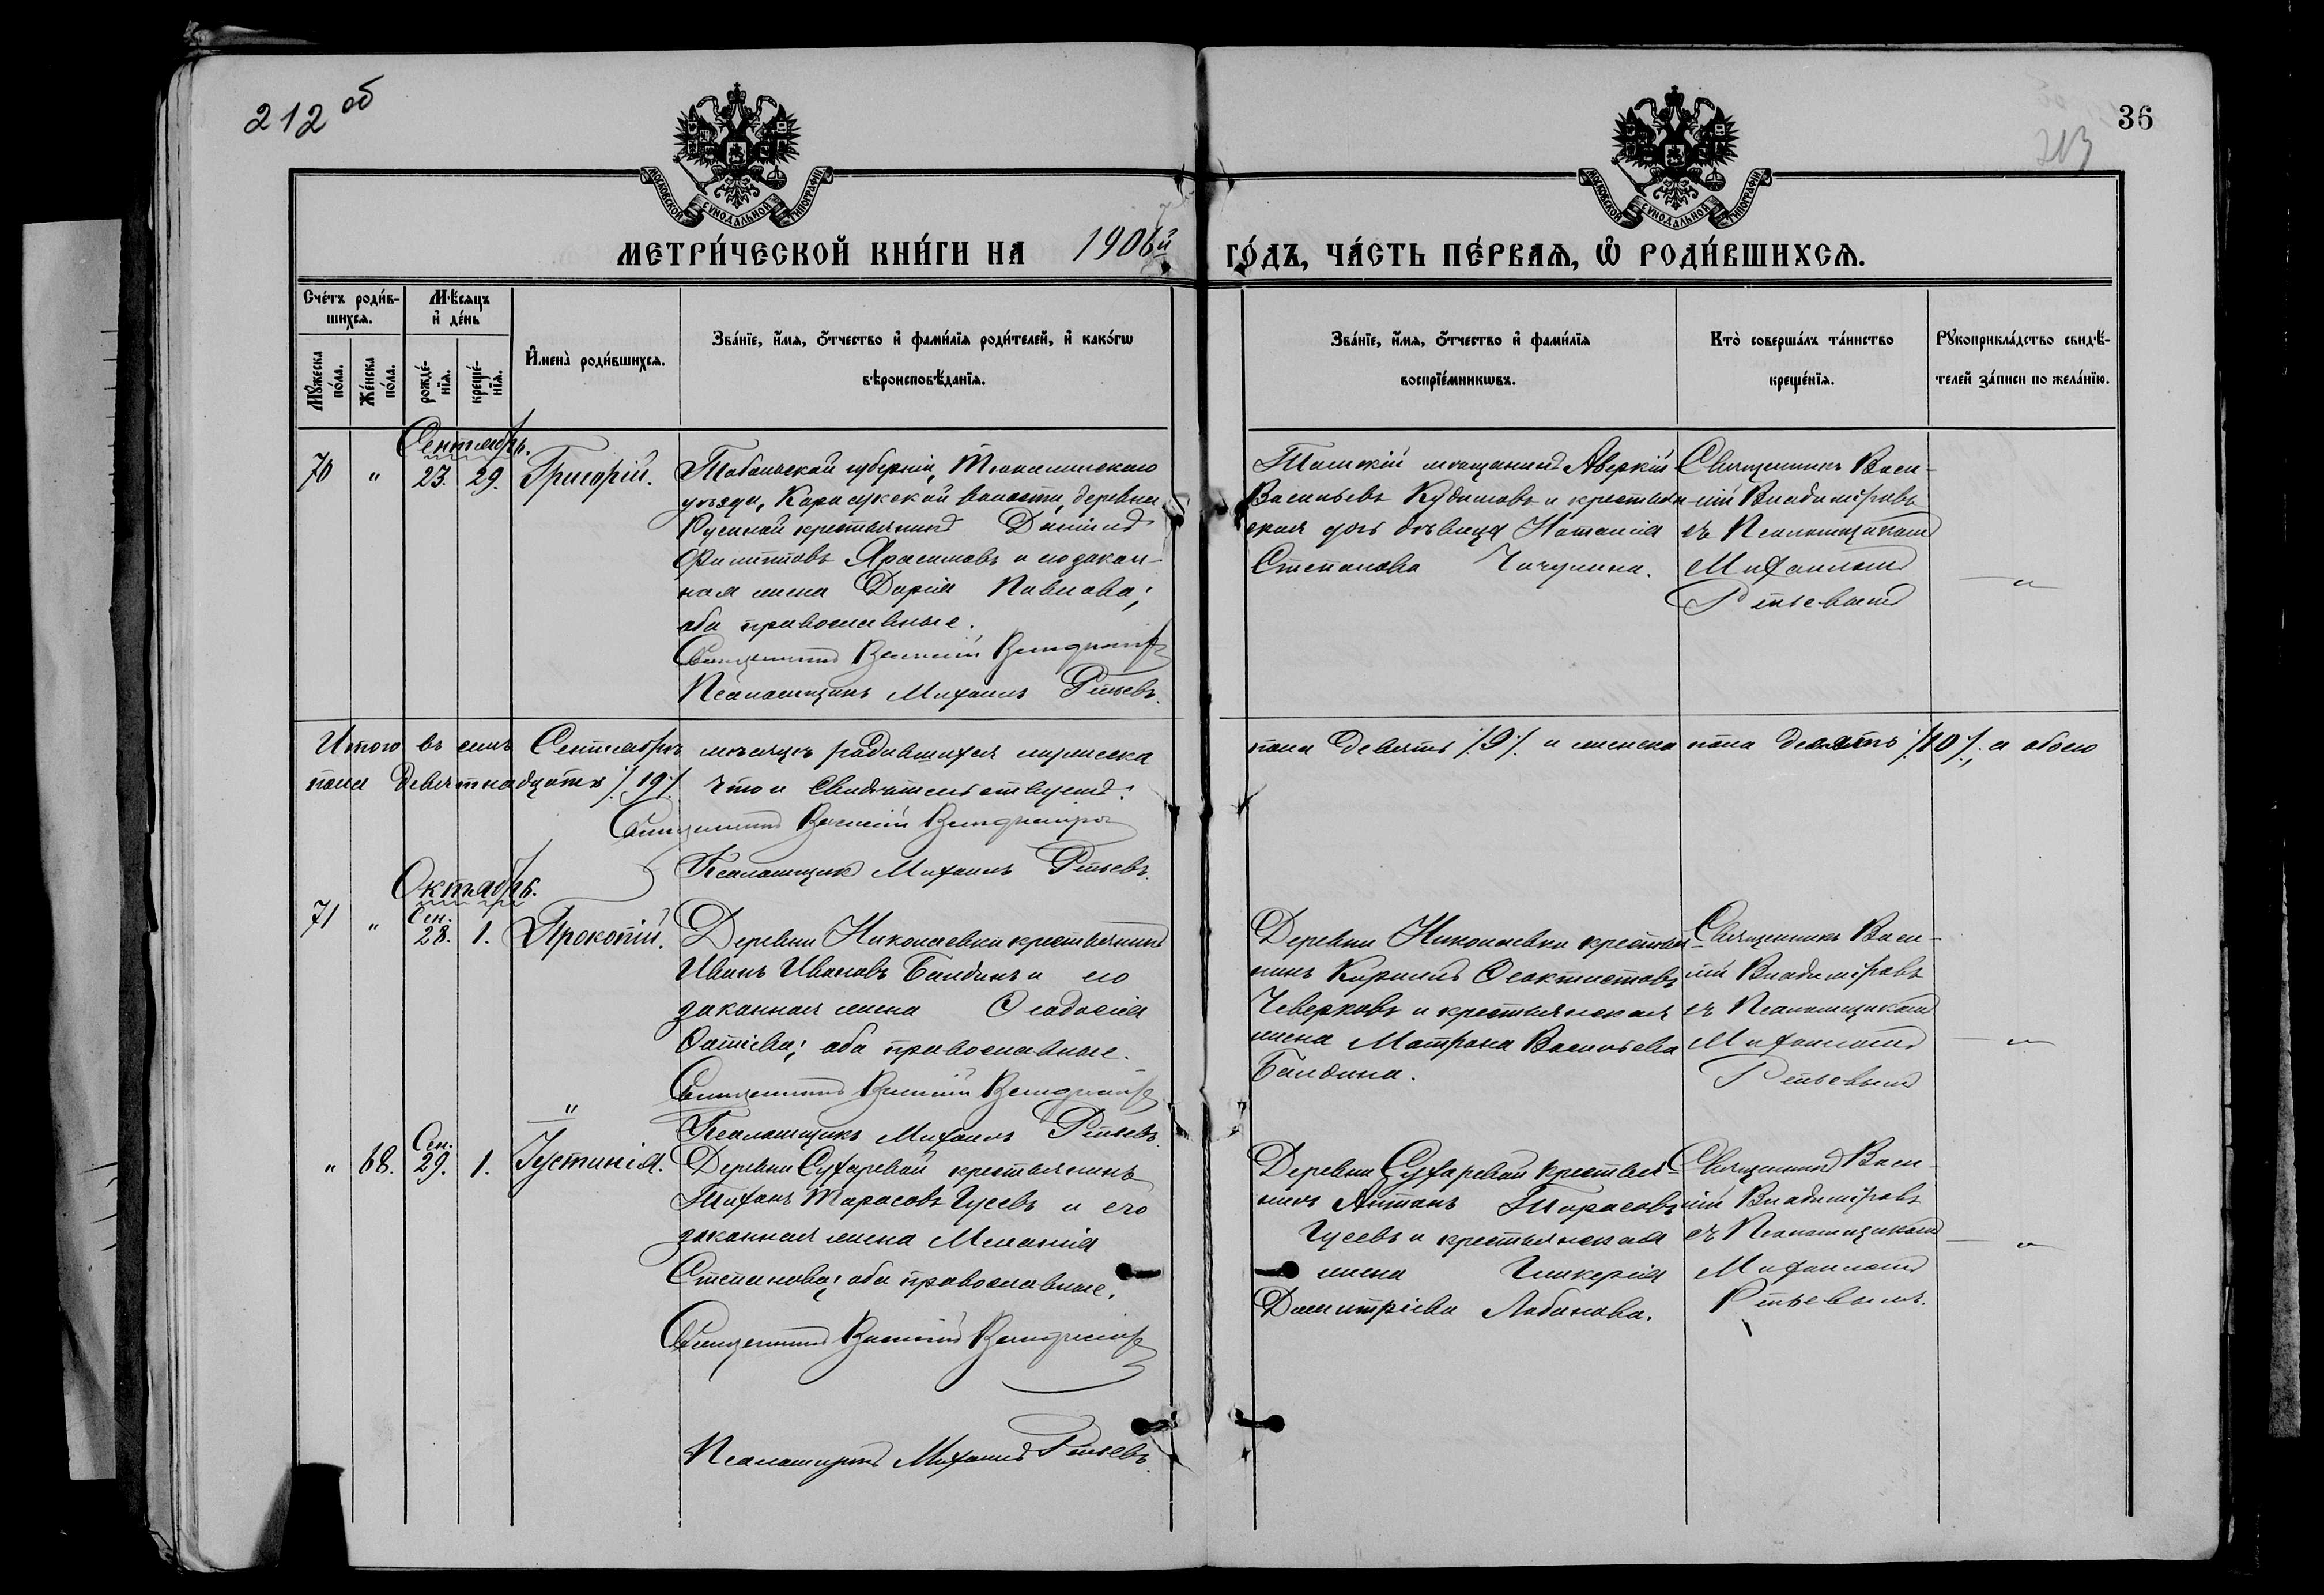 212 об
36
213
МОСКОВСКОЙ СѴНОДАЛЬНОЙ ТИПОГРАФІИ
МОСКОВСКОЙ СѴНОДАЛЬНОЙ ТИПОГРАФІИ
МЕТРИ́ЧЕСКОЙ КНИ́ГИ НА 1906й ГО́ДЪ, ЧА́СТЬ ПЕ́РВАѦ, Ѽ РОДИ́ВШИХСѦ.
Сче́тъ роди́в-
шихсѧ.
Мꙋ́жеска по́ла.
Же́нска по́ла.
Мѣ́сѧцъ и҆ де́нь
рожде́-
нїѧ.
креще́-
нїѧ.
И҆мена̀ роди́вшихсѧ.
Зва́нїе, и҆́мѧ, ѻ҆́тчество и҆ фами́лїѧ роди́телей, и҆ како́гѡ
вѣроисповѣ́данїѧ.
Зва́нїе, и҆́мѧ, ѻ҆́тчество и҆ фами́лїѧ
воспрїе́мникѡвъ.
Кто̀ соверша́лъ та́инство
креще́нїѧ.
Рꙋкоприкла́дство свидѣ́-
телей за́писи по жела́нїю.
Сентябрь.
70 " 23. 29. Григорій.
Тобольской губерніи, Тюкалинскаго
уѣзда, Карасукской волости, деревни
крестьянинъ Даніилъ
Филипповъ Ярасимовъ и его закон-
ная жена Дарія Павлова;
оба православные.
Священникъ Василій Владиміровъ
Псаломщикъ Михаилъ Рѣпьевъ.
Томскій мѣщанинъ Аверкій
Васильевъ Кудимовъ и крестьян-
ская дочь дѣвица Наталія
Степанова Чичулина.
Священникъ Васи-
лій Владиміровъ
съ Псаломщикомъ
Михаиломъ
Рѣпьевымъ
— " —
Итого въ семъ Сентябрѣ мѣсяцѣ родившихся мужеска пола девять /.9./. и женска пола десять /.10./., а обоего
пола девятнадцать /.19./. Что и свидѣтельствуемъ:
Священникъ Василій Владиміровъ
Псаломщикъ Михаилъ Рѣпьевъ.
Октябрь.
71 " Сен. 28. 1. Прокопій.
Деревни Николаевки крестьянинъ
Иванъ Ивановъ Балдинъ и его
законная жена Ѳеодосія
Фатіева; оба православные.
Священникъ Василій Владиміровъ
Псаломщикъ Михаилъ Рѣпьевъ.
Деревни Николаевки крестья-
нинъ Кириллъ Ѳеоктистовъ
Чеверковъ и крестьянская
жена Матрона Васильева
Балдина.
Священникъ Васи-
лій Владиміровъ
съ Псаломщикомъ
Михаиломъ
Рѣпьевымъ
— " —
"
" 68. Сен. 29. 1. Іустинія.
Деревни Сухаревой крестьянинъ
Тихонъ Тарасовъ Гусевъ и его
законная жена Меланія
Степанова; оба православные.
Священникъ Василій Владиміровъ
Псаломщикъ Михаилъ Рѣпьевъ.
Деревни Сухаревой крестья-
нинъ Антонъ Тарасовъ
Гусевъ и крестьянская
жена Гликерія
Димитріева Лобанова.
Священникъ Васи-
лій Владиміровъ
съ Псаломщикомъ
Михаиломъ
Рѣпьевымъ.
— " —